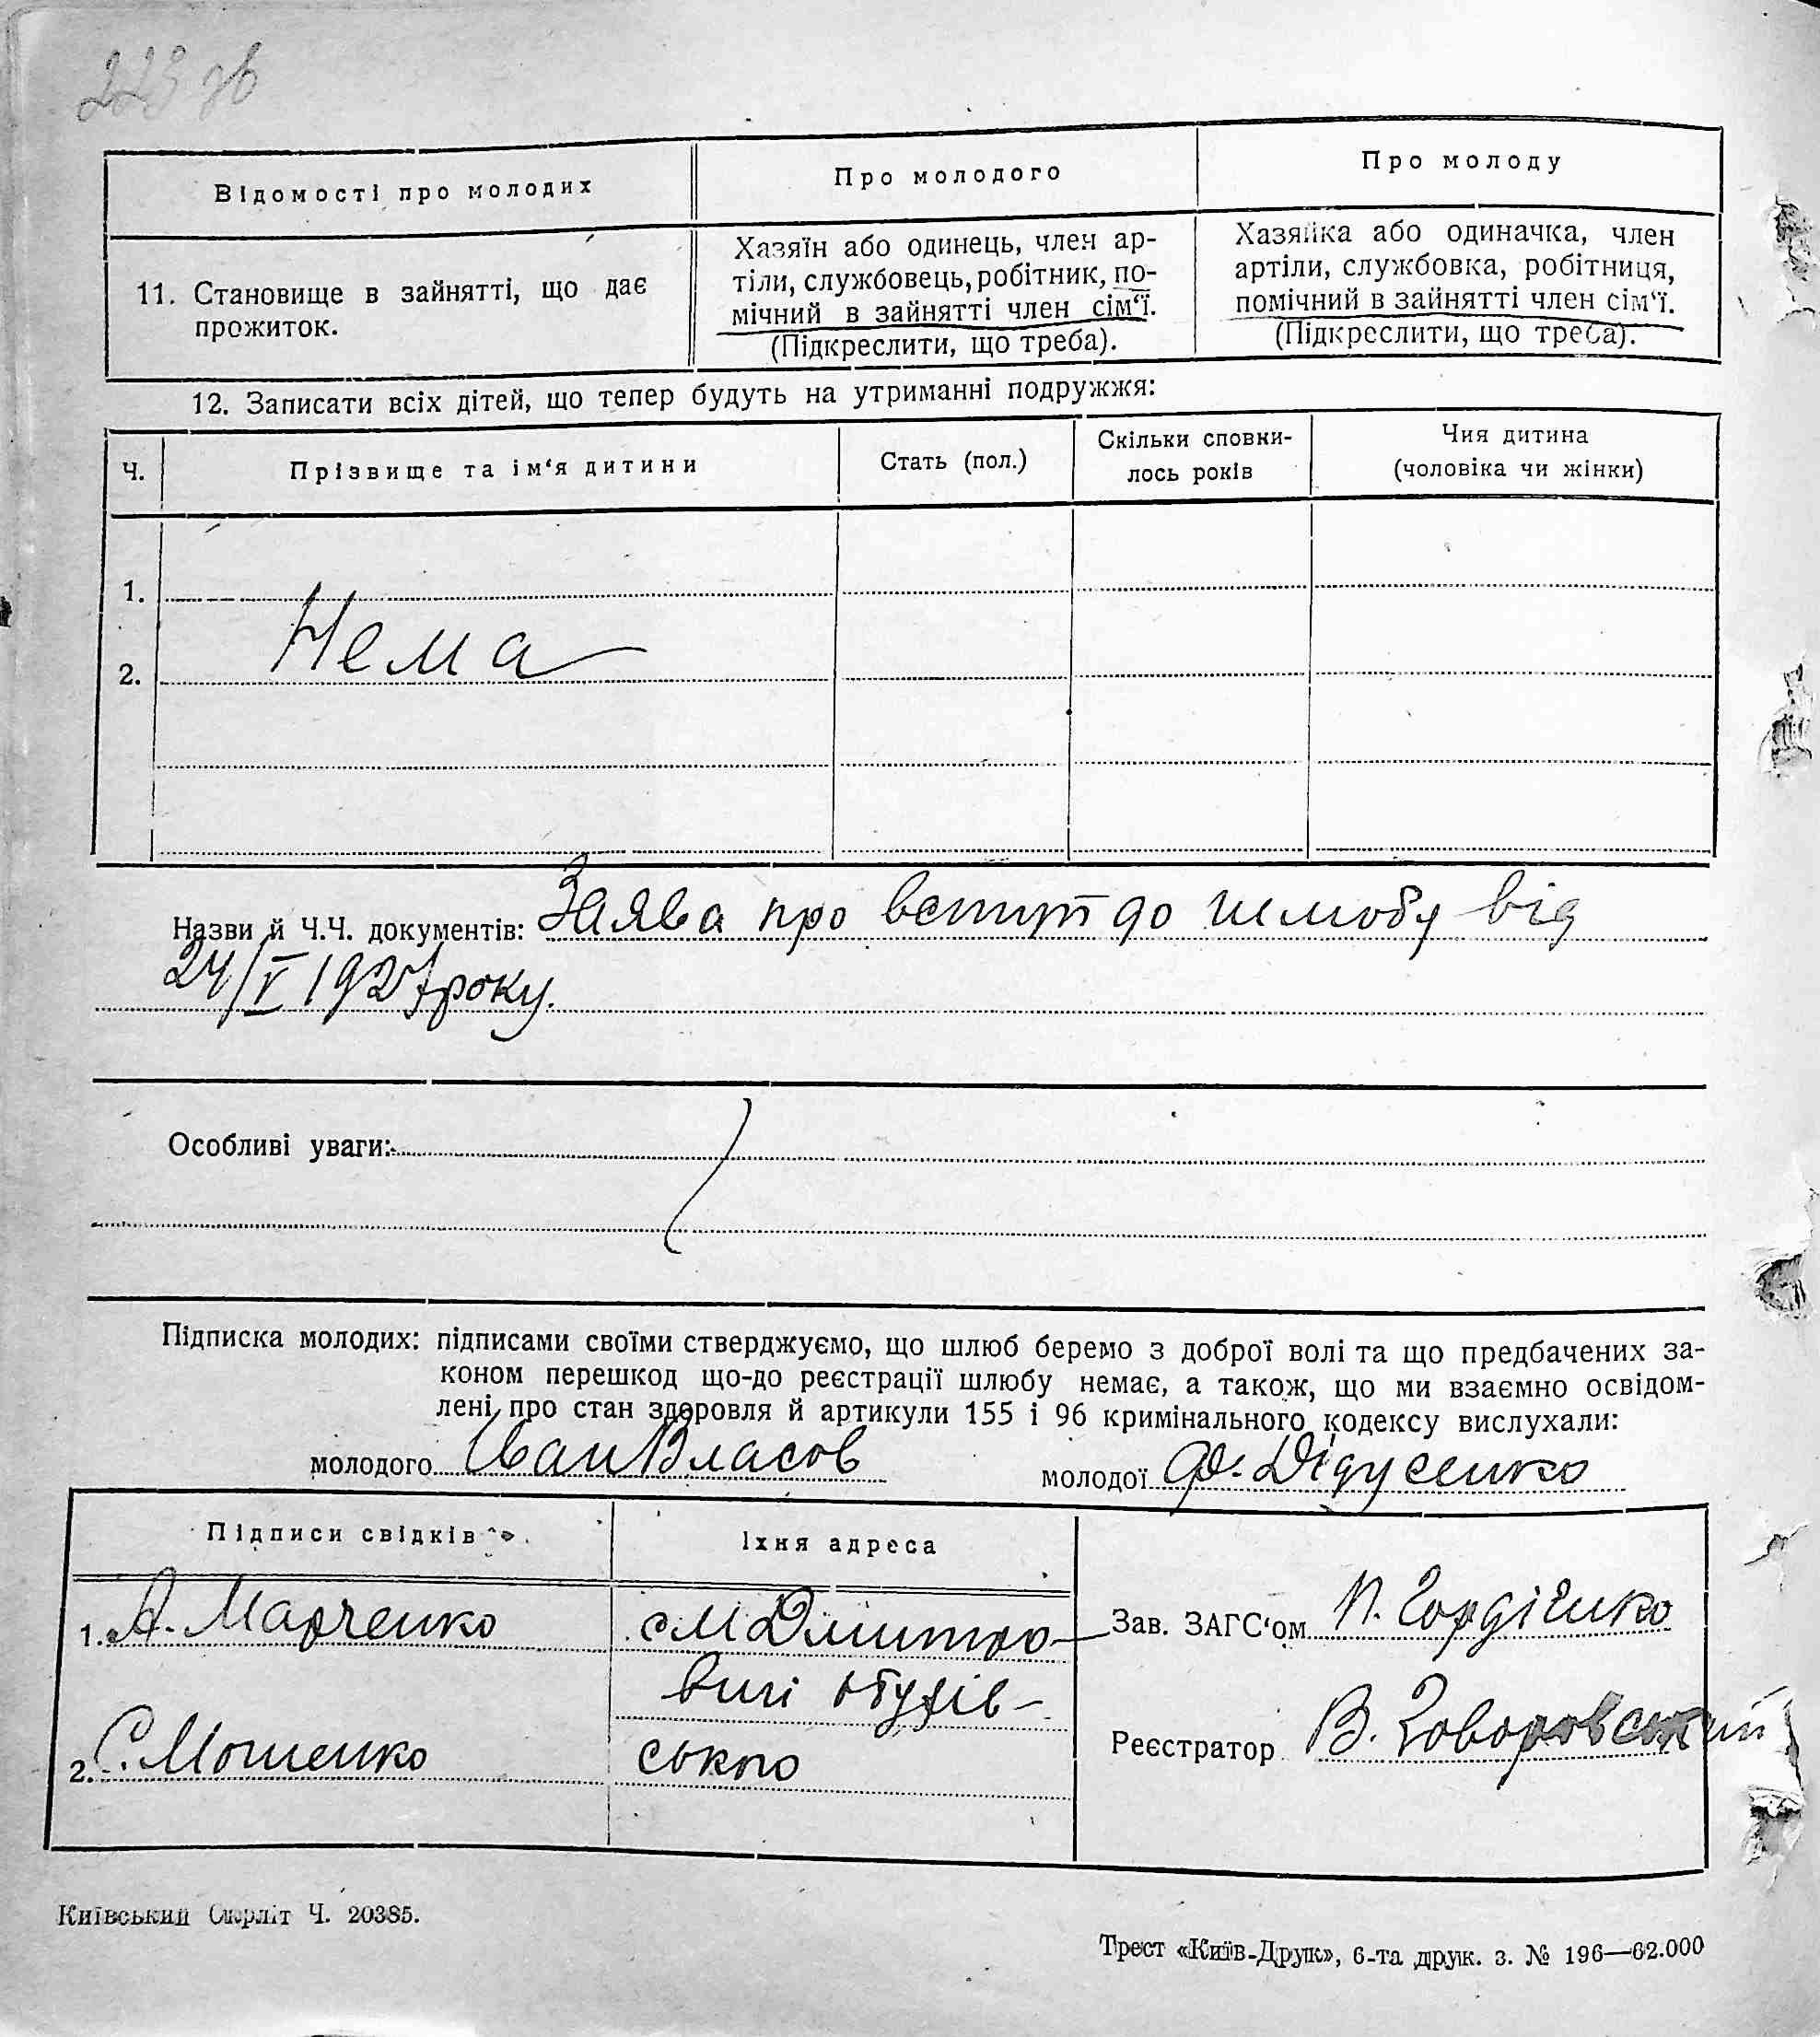 223 зв
Відомості про молодих
Про молодого
Про молоду
11. Становище в зайнятті, що дає
прожиток.
Хазяїн або одинець, член ар-
тіли, службовець, робітник, по-
мічний в зайнятті член сім‘ї.
(Підкреслити, що треба).
Хазяйка або одиначка, член
артіли, службовка, робітниця,
помічний в зайнятті член сім‘ї.
(Підкреслити, що треба).
12. Записати всіх дітей, що тепер будуть на утриманні подружжя:
Ч.
Прізвище та ім‘я дитини
Стать (пол.)
Скільки сповни-
лось років
Чия дитина
(чоловіка чи жінки)
1.
Нема
2.
Назви й Ч.Ч. документів: Заява про вступ до шлюбу від
24/V 1927 року.
Особливі уваги:
Підписка молодих: підписами своїми стверджуємо, що шлюб беремо з доброї волі та що предбачених за-
коном перешкод що-до реєстрації шлюбу немає, а також, що ми взаємно освідом-
лені про стан здоровля й артикули 155 і 96 кримінального кодексу вислухали:
молодого Іван Власов
молодої Дідусенко
Підписи свідків
Їхня адреса
1. А. Марченко
с М Дмитро-
вичі Обухів-
2. С. Мошенко
ського
Зав. ЗАГС‘ом П. Гордієнко
Реєстратор В. Говоровський
Київський Окрліт Ч. 20385.
Трест «Київ-Друк», 6-та друк. з. № 196—62.000